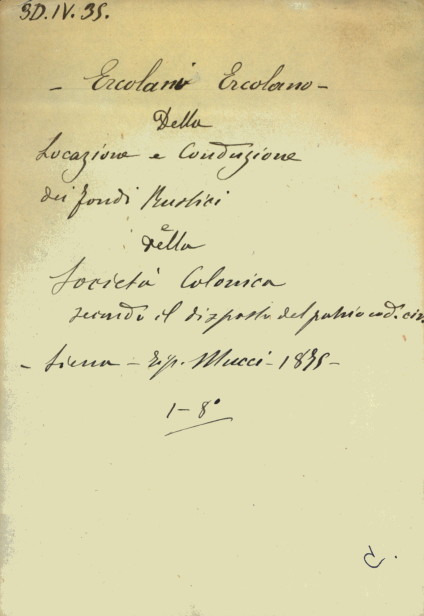 3D.IV.35.
- Ercolani Ercolano -
Della
Locazione e Conduzione
dei fondi Rustici
e
della
Società Colonica
secondo il disposto del patrio cod. civ
- Siena - Tip. Mucci - 1875 -
1 - 8°